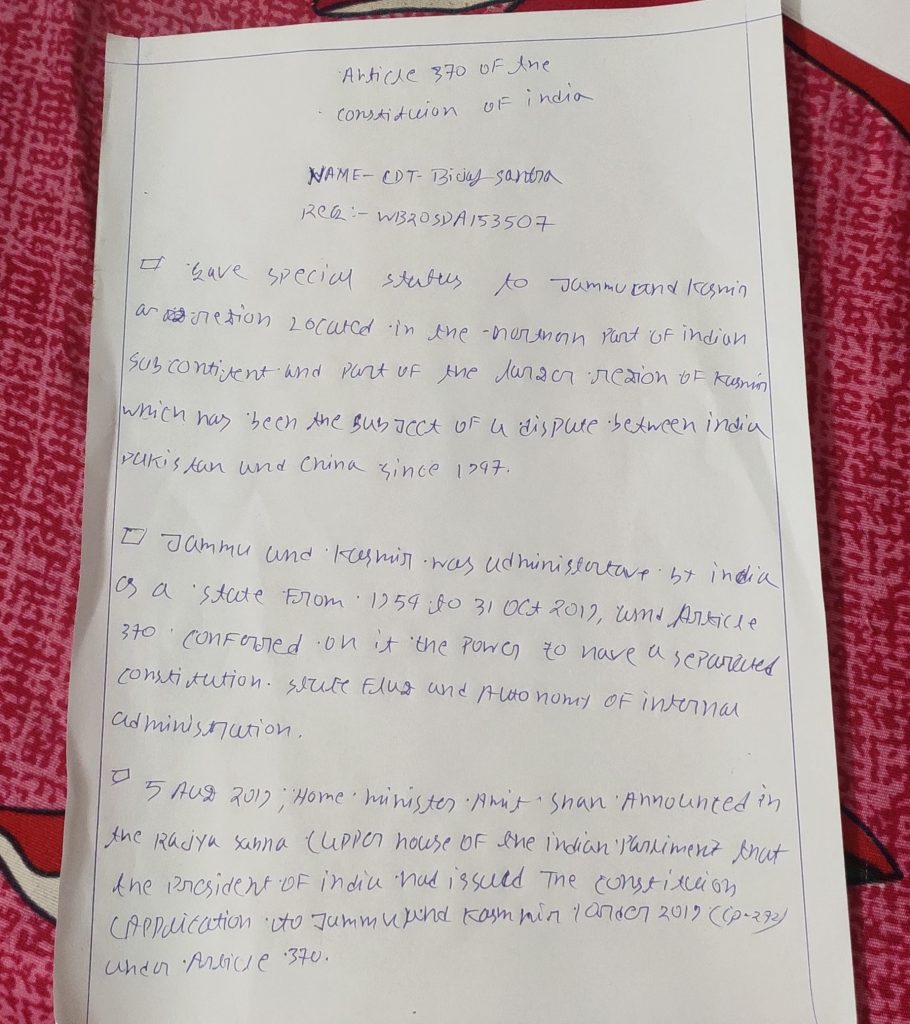 Article 370 OF the
constituion OF india
NAME- CDT- Bijay santra
REG:- WB20SDA153507
gave special status to Jammu and Kasmir
a region Located in the northern part OF indian
subcontinent and part OF the larger region OF Kasmir
which has been the subject OF a dispute between india
pakistan and china since 1947.
Jammu and Kasmir was by india
as a state From 1954 to 31 Oct 2019, and Article
370 conferred on it the power to have a separated
constitution. state Flag and Autonomy OF internal
administration.
5 Aug 2019, Home minister Amit shah Announced in
the Rajya sabha (upper house OF the indian Parliment that
the President OF india had issued The constituion
(Application to Jammu and Kasmir) order 2019 (
under Article 370.